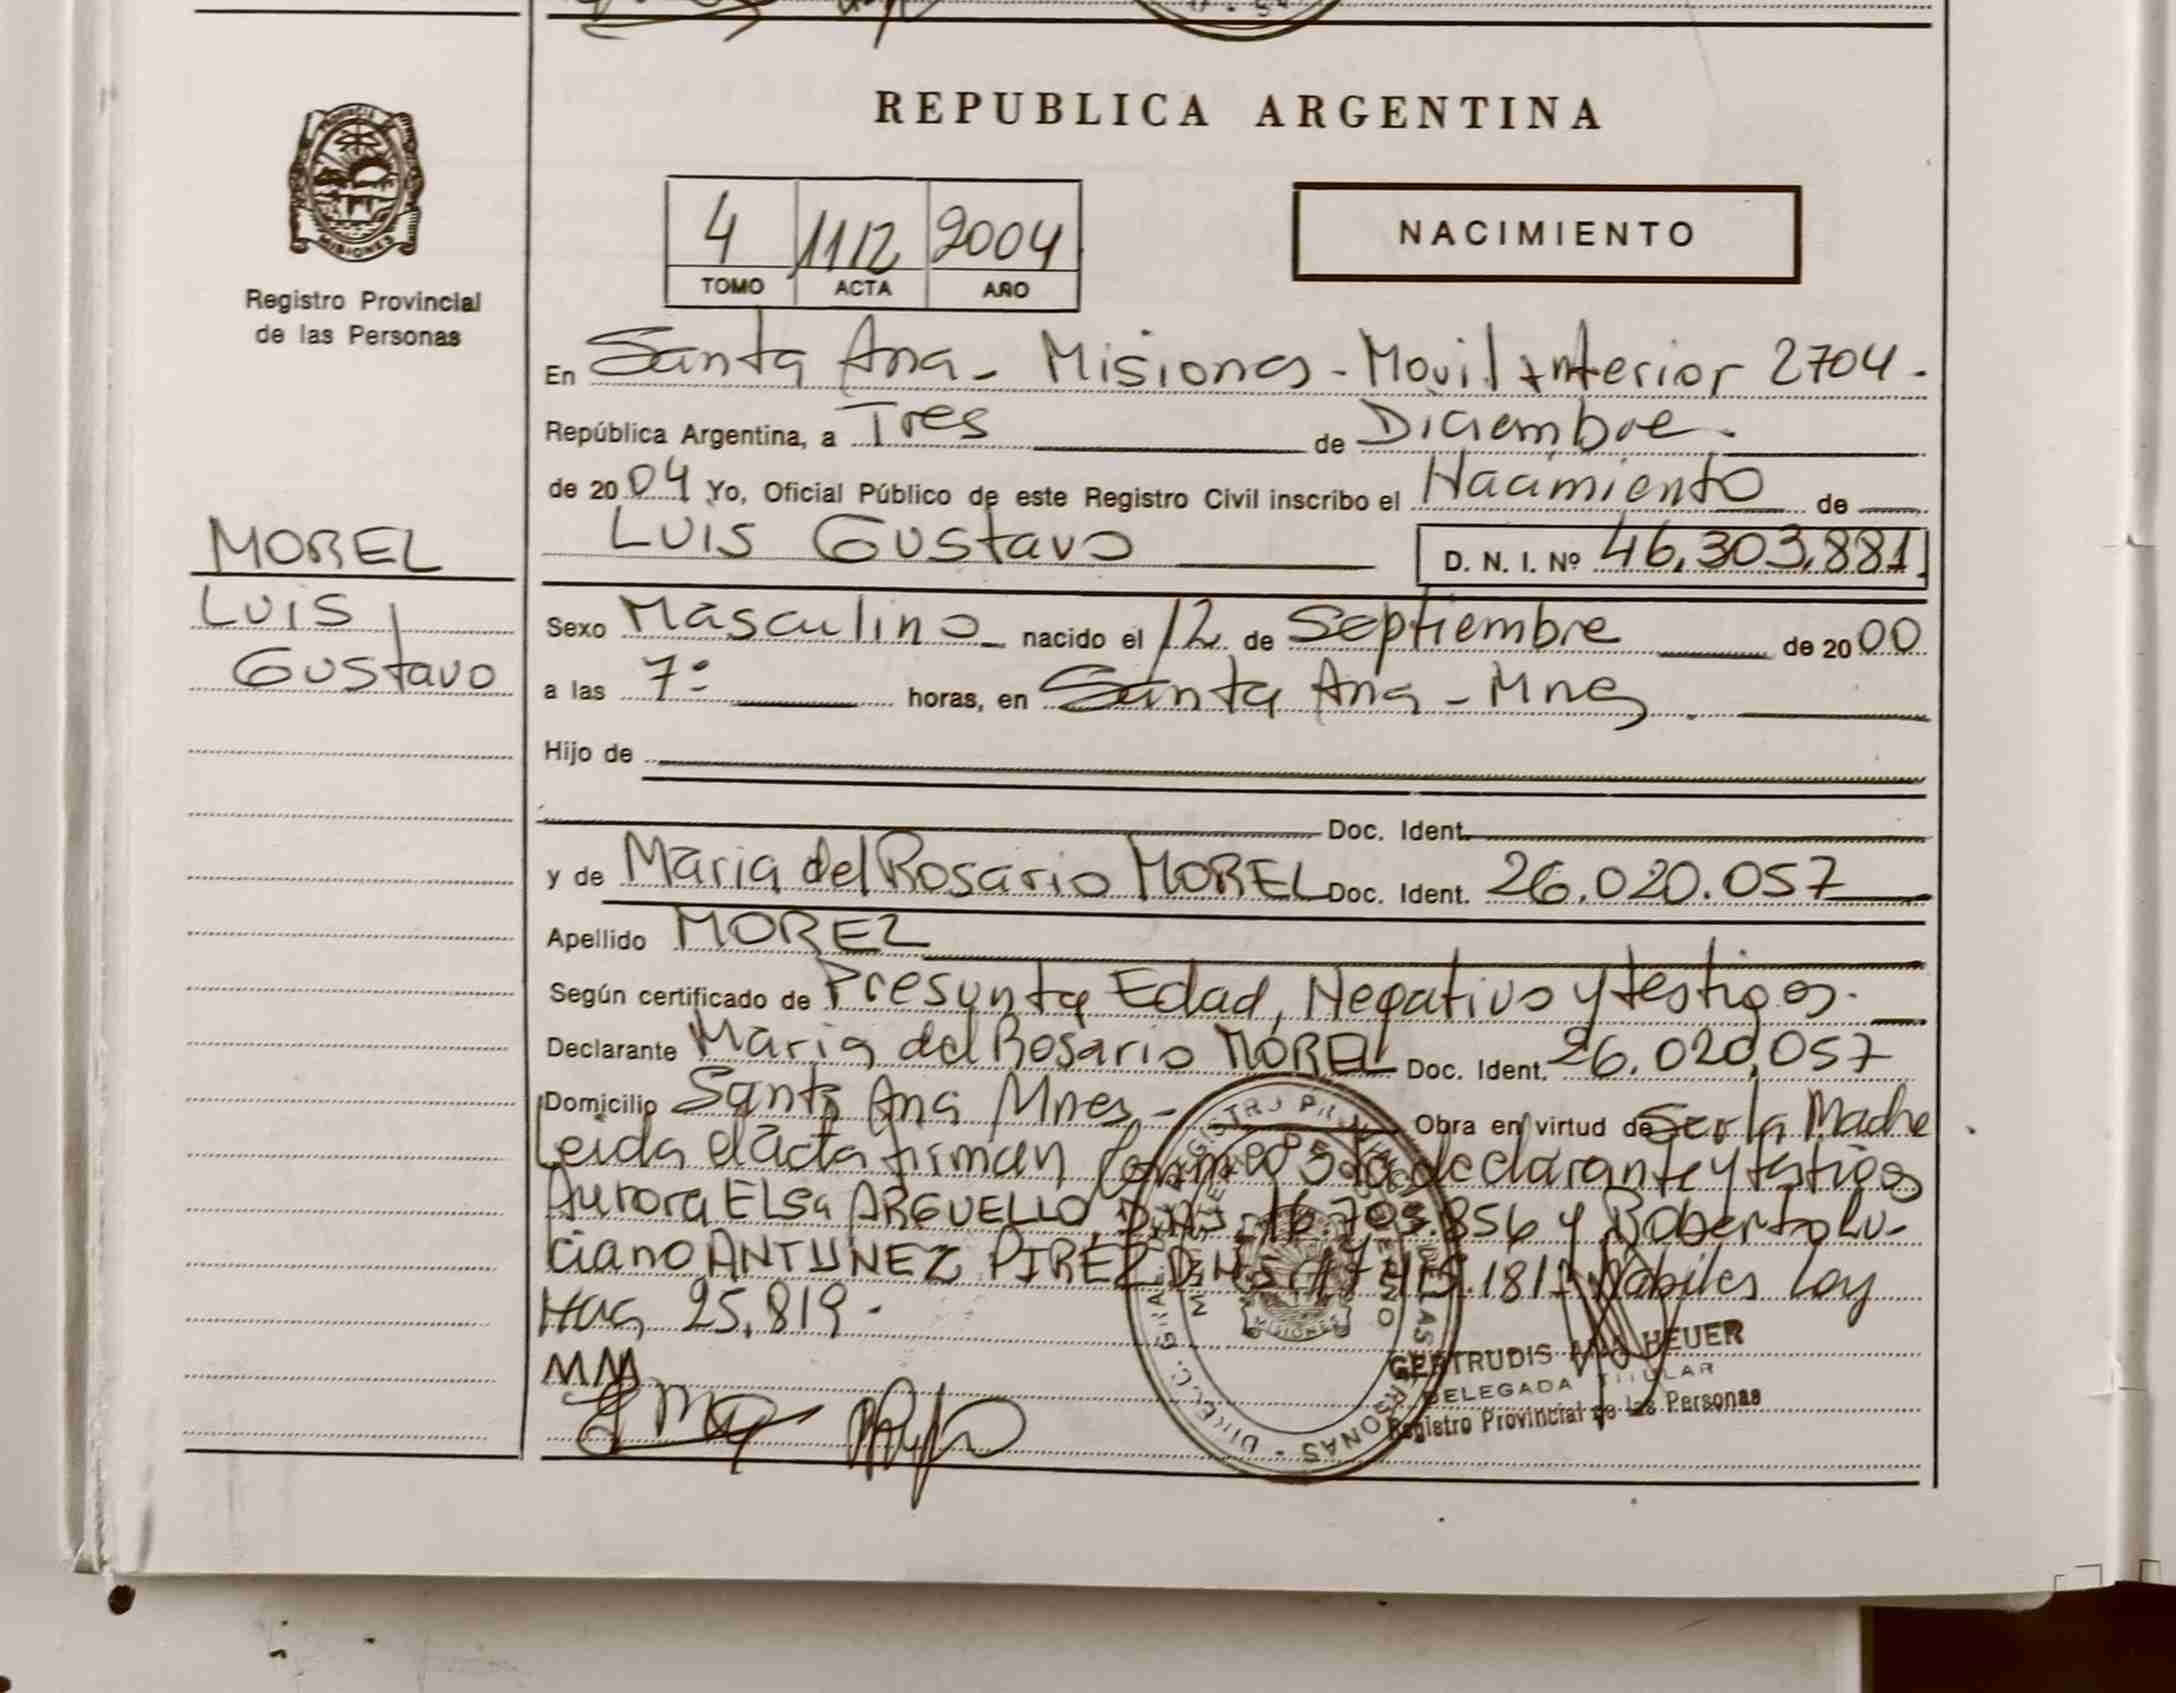 REPUBLICA ARGENTINA
PROVINCIA DE
MISIONES
Registro Provincial
de las Personas
4 1112 2004
TOMO ACTA AÑO
NACIMIENTO
En Santa Ana - Misiones - Movil Interior 2704.
República Argentina, a Tres de Diciembre.
de 2004 Yo, Oficial Público de este Registro Civil inscribo el Nacimiento de
Luis Gustavo D. N. I. Nº 46.303.881
MOREL
Luis
Gustavo
Sexo Masculino nacido el 12 de Septiembre de 2000
a las 7: horas, en Santa Ana - Mnes
Hijo de
Doc. Ident.
y de Maria del Rosario MOREL Doc. Ident. 26.020.057
Apellido MOREL
Según certificado de Presunta Edad, Negativo y testigos.
Declarante Maria del Rosario MOREL Doc. Ident. 26.020.057
Domicilio Santa Ana Mnes - Obra en virtud de Ser la Madre
Leida el acta firman declarante y testigos
Aurora Elsa ARGUELLO 856 y Roberto Lu-
ciano ANTUNEZ PIREZ Habiles Ley
Nac 25.819.
MM
GERTRUDIS HEUER
DELEGADA TITULAR
Registro Provincial de las Personas